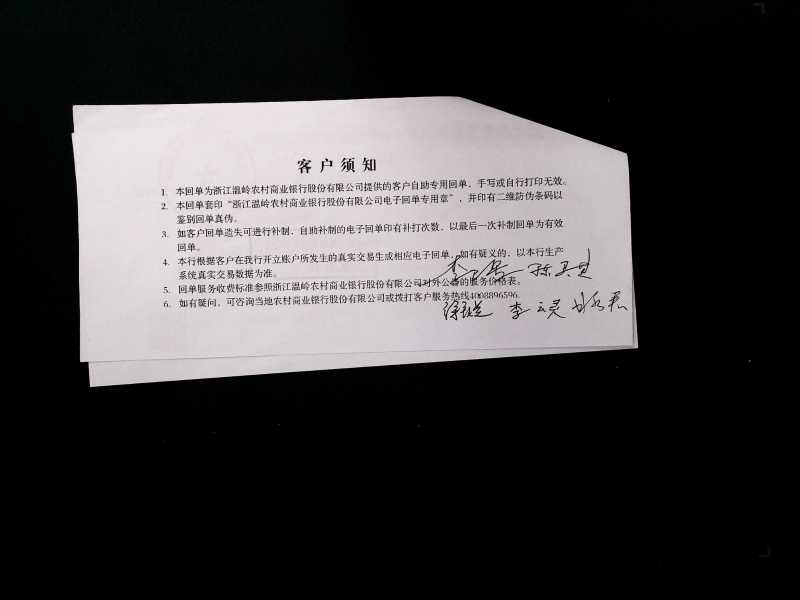 客户须知
1. 本回单为浙江温岭农村商业银行股份有限公司提供的客户自助专用回单，手写或自行打印无效。
2. 本回单套印“浙江温岭农村商业银行股份有限公司电子回单专用章”，并印有二维防伪条码以
鉴别回单真伪。
3. 如客户回单遗失可进行补制，自助补制的电子回单印有补打次数，以最后一次补制回单为有效
回单。
4. 本行根据客户在我行开立账户所发生的真实交易生成相应电子回单，如有疑义的，以本行生产
系统真实交易数据为准。
5. 回单服务收费标准参照浙江温岭农村商业银行股份有限公司对外公布的服务价格表。
6. 如有疑问，可咨询当地农村商业银行股份有限公司或拨打客户服务热线4008896596.
李云灵